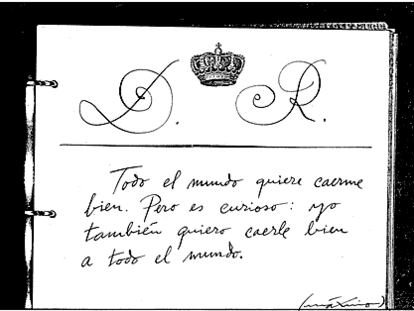 D. R.
Todo el mundo quiere caerme
bien. Pero es curioso: yo
también quiero caerle bien
a todo el mundo.
(máximo)